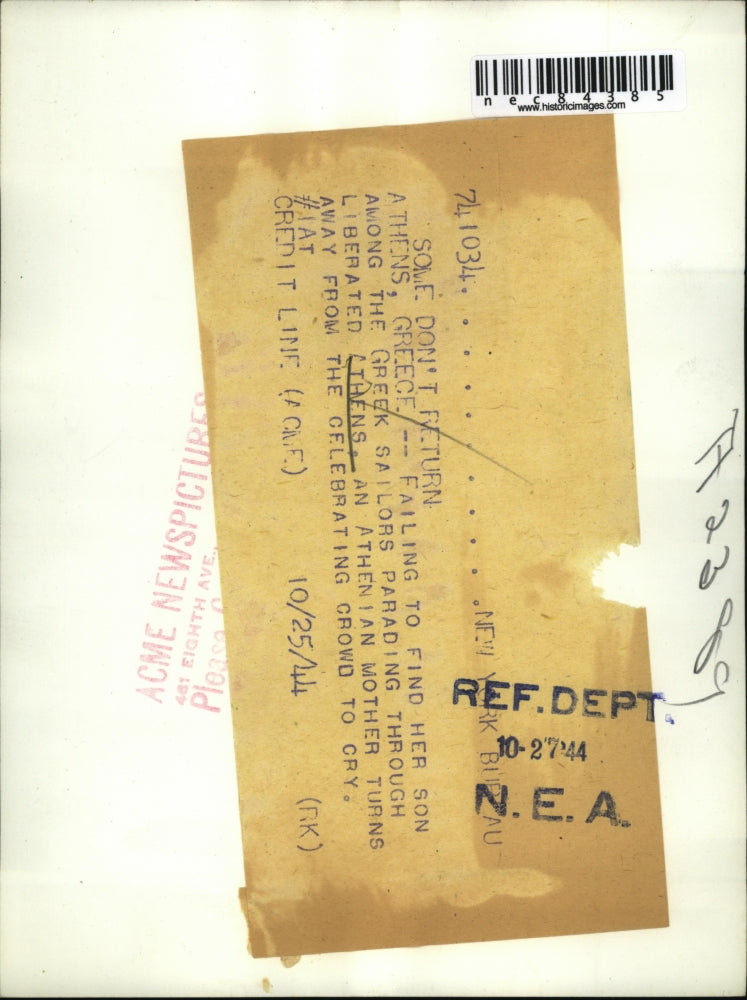 nec84385
www.historicimages.com
741034. . . . . . . . .NEW YORK BUREAU
SOME DON'T RETURN
ATHENS, GREECE -- FAILING TO FIND HER SON
AMONG THE GREEK SAILORS PARADING THROUGH
LIBERATED ATHENS. AN ATHENIAN MOTHER TURNS
AWAY FROM THE CELEBRATING CROWD TO CRY.
#1AT
CREDIT LINE (ACME) 10/25/44 (RK)
REF. DEPT.
10-27-44
N. E. A.
ACME NEWSPICTURES
461 EIGHTH AVE.,
Please